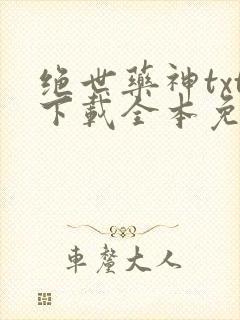 绝世药神txt
下载全本免
车厘大人